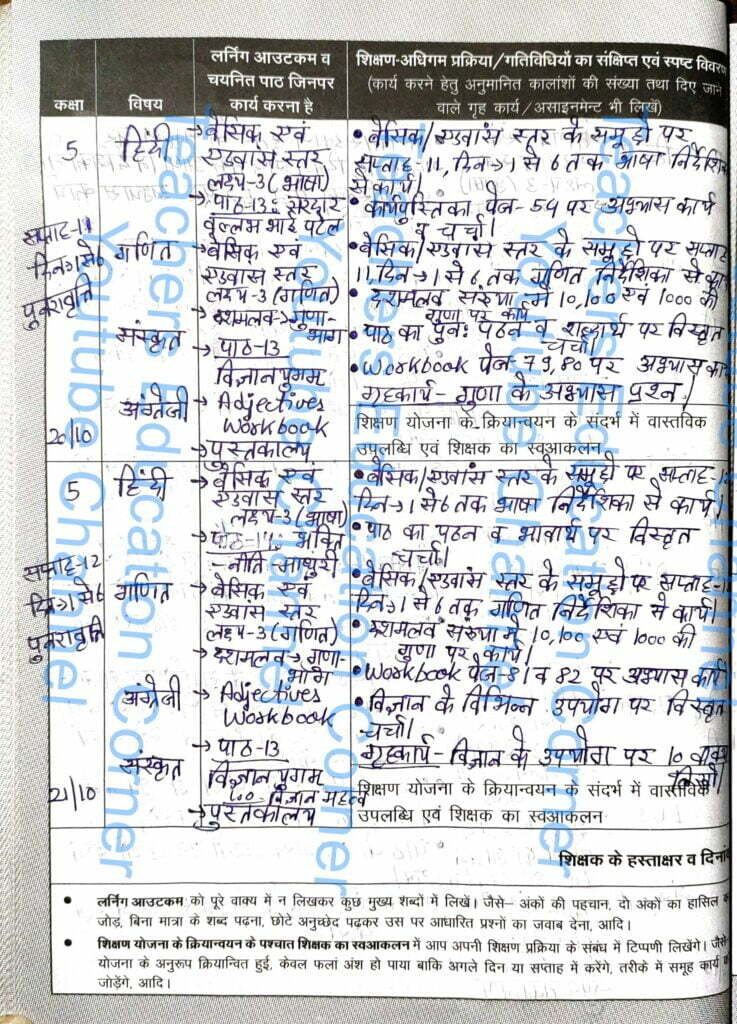 कक्षा
विषय
लर्निंग आउटकम व
चयनित पाठ जिनपर
कार्य करना है
शिक्षण-अधिगम प्रक्रिया/गतिविधियों का संक्षिप्त एवं स्पष्ट विवरण
(कार्य करने हेतु अनुमानित कालांशों की संख्या तथा दिए जाने
वाले गृह कार्य/असाइनमेन्ट भी लिखें)
5
सप्ताह-11
दिन→1 से 6
पुनरावृत्ति
20/10
हिंदी
गणित
संस्कृत
अंग्रेजी
→ बेसिक एवं
एडवांस स्तर
लक्ष्य-3 (भाषा)
→ पाठ-13: सरदार
वल्लभ भाई पटेल
→ बेसिक एवं
एडवांस स्तर
लक्ष्य-3 (गणित)
→ दशमलव→गुणा-
भाग
→ पाठ-13
विज्ञानयुगम्
→ Adjectives
Workbook
→ पुस्तकालय
• बेसिक/एडवांस स्तर के समूहों पर
सप्ताह-11, दिन→1 से 6 तक भाषा निर्देशिका
से कार्य।
• कार्यपुस्तिका पेज-54 पर अभ्यास कार्य
व चर्चा।
• बेसिक/एडवांस स्तर के समूहों पर सप्ताह
11, दिन→1 से 6 तक गणित निर्देशिका से कार्य
• दशमलव संख्या में 10,100 एवं 1000 की
गुणा पर कार्य
• पाठ का पुनः पठन व शब्दार्थ पर विस्तृत
चर्चा।
• Workbook पेज-79,80 पर अभ्यास कार्य
गृहकार्य- गुणा के अभ्यास प्रश्न।
शिक्षण योजना के क्रियान्वयन के संदर्भ में वास्तविक
उपलब्धि एवं शिक्षक का स्वआकलन
5
सप्ताह-12
दिन→1 से 6
पुनरावृत्ति
21/10
हिंदी
गणित
अंग्रेजी
संस्कृत
→ बेसिक एवं
एडवांस स्तर
लक्ष्य-3 (भाषा)
→ पाठ-11: भक्ति
-नीति-माधुरी
→ बेसिक एवं
एडवांस स्तर
लक्ष्य-3 (गणित)
→ दशमलव→गुणा-
भाग
→ Adjectives
Workbook
→ पाठ-13
विज्ञानयुगम्
विज्ञान
→ पुस्तकालय
• बेसिक/एडवांस स्तर के समूहों पर सप्ताह-1
दिन→1 से 6 तक भाषा निर्देशिका से कार्य।
• पाठ का पठन व भावार्थ पर विस्तृत
चर्चा।
• बेसिक/एडवांस स्तर के समूहों पर सप्ताह-1
दिन→1 से 6 तक गणित निर्देशिका से कार्य।
• दशमलव संख्या में 10,100 एवं 1000 की
गुणा पर कार्य।
• Workbook पेज-81 व 82 पर अभ्यास कार्य
• विज्ञान के विभिन्न उपयोग पर विस्तृत
चर्चा।
गृहकार्य- विज्ञान के उपयोग पर 10 वाक्य
लिखो।
शिक्षण योजना के क्रियान्वयन के संदर्भ में वास्तविक
उपलब्धि एवं शिक्षक का स्वआकलन
शिक्षक के हस्ताक्षर व दिनांक
• लर्निंग आउटकम को पूरे वाक्य में न लिखकर कुछ मुख्य शब्दों में लिखें। जैसे- अंकों की पहचान, दो अंकों का हासिल का
जोड़, बिना मात्रा के शब्द पढ़ना, छोटे अनुच्छेद पढ़कर उस पर आधारित प्रश्नों का जवाब देना, आदि।
• शिक्षण योजना के क्रियान्वयन के पश्चात शिक्षक का स्वआकलन में आप अपनी शिक्षण प्रक्रिया के संबंध में टिप्पणी लिखेंगे। जैसे-
योजना के अनुरूप क्रियान्वित हुई, केवल फलां अंश हो पाया बाकि अगले दिन या सप्ताह में करेंगे, तरीके में समूह कार्य
जोड़ेंगे, आदि।
Teachers Education Corner
Youtube Channel
Teachers Education Corner
Youtube Channel
Teachers Education Corner
Youtube Channel